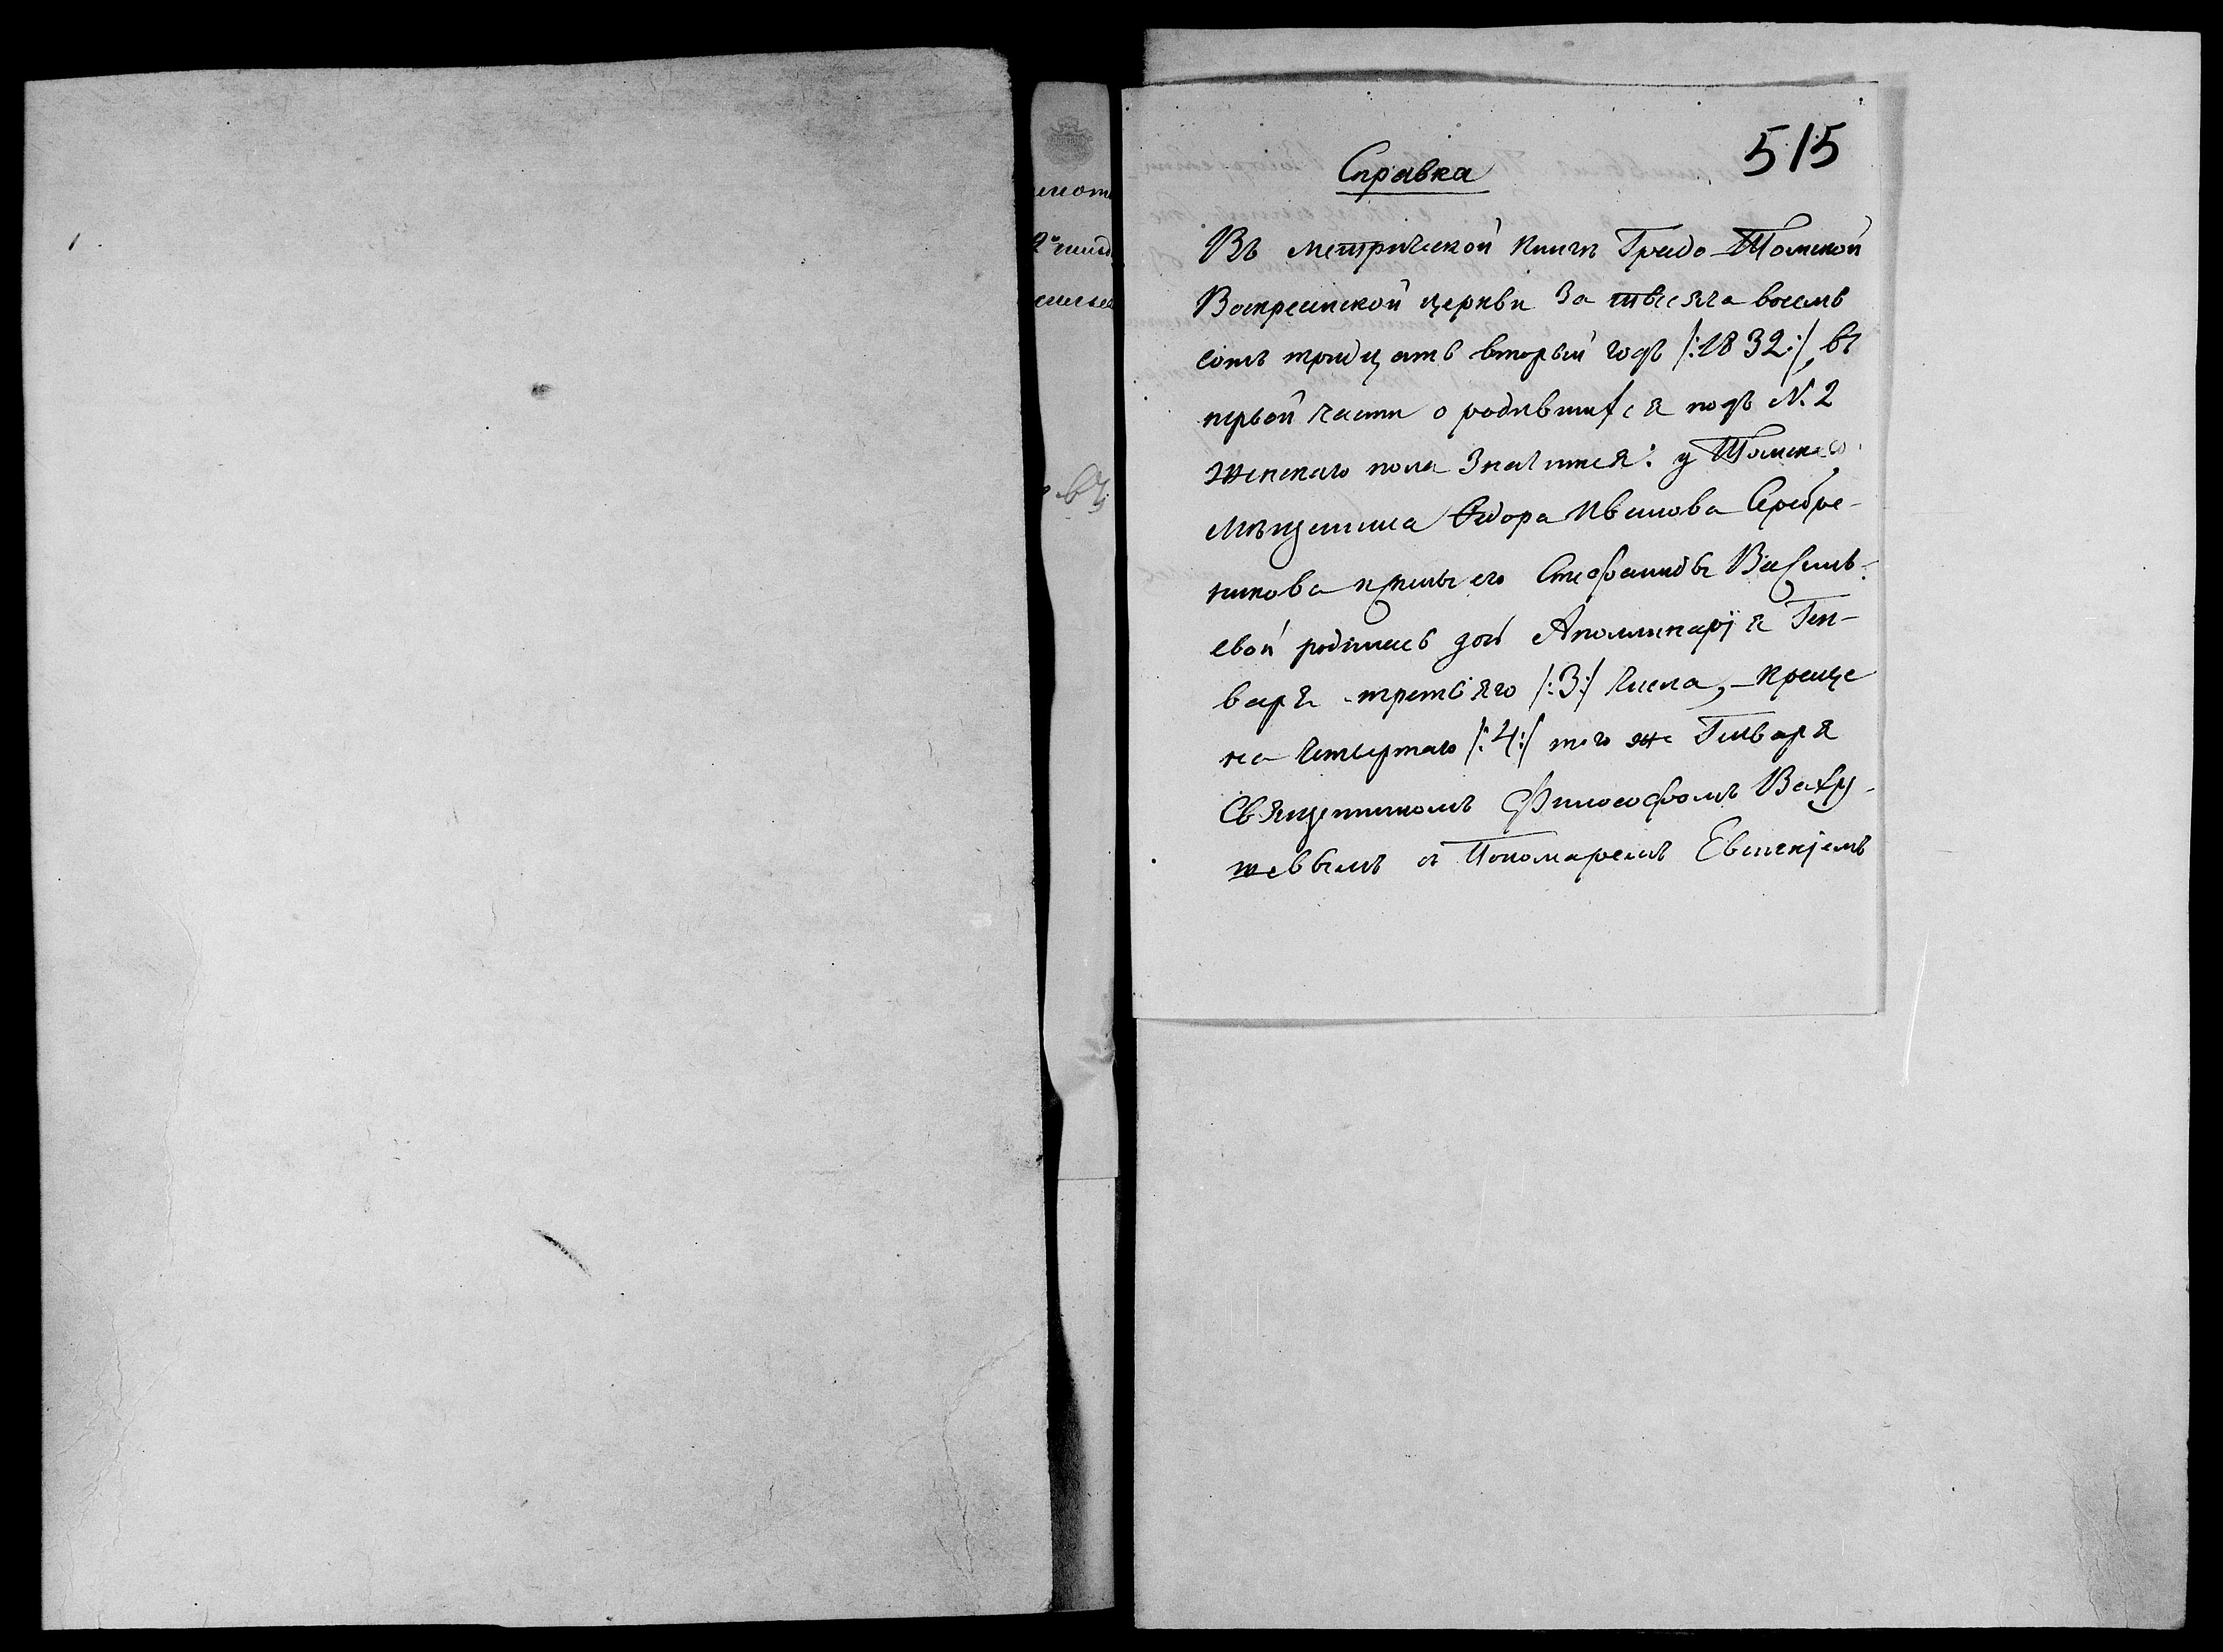 515
Справка
Въ метрической книгѣ Градо-Томской
Воскресенской церкви за тысяча восемь
сотъ тридцать вторый годъ /:1832:/, въ
первой части о родившихся подъ N. 2
женскаго пола значится: у Томскаго
мѣщанина Ѳедора Иванова Серебре-
никова и жены его Стефаниды Василь-
евой родилась дочь Аполлинарія Ген-
варя третьяго /:3:/ числа, - креще
на четвертаго /:4:/ того же Генваря
Священникомъ Философомъ Вахру-
шевымъ съ Пономаремъ Евгеніемъ